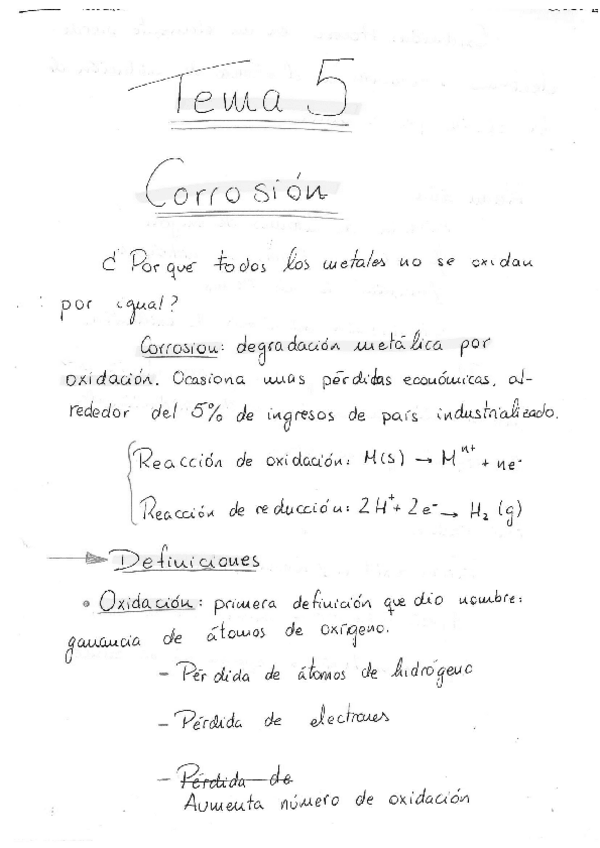 Tema 5
Corrosión
¿Por qué todos los metales no se oxidan
por igual?
Corrosion: degradación metálica por
oxidación. Ocasiona unas pérdidas económicas, al-
rededor del 5% de ingresos de país industrializado.
Reacción de oxidación: M(s) → Mⁿ⁺ + ne⁻
Reacción de reducción: 2H⁺ + 2e⁻ → H₂ (g)
→ Definiciones
• Oxidación: primera definición que dio nombre:
ganancia de átomos de oxígeno.
- Pérdida de átomos de hidrógeno
- Pérdida de electrones
- ~~Pérdida de~~
Aumenta número de oxidación